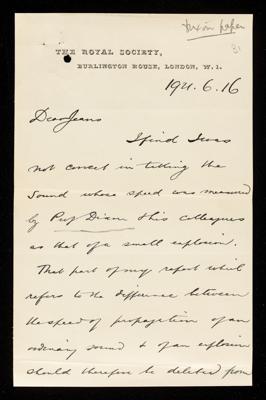 Dixon paper
31
THE ROYAL SOCIETY,
BURLINGTON HOUSE, LONDON, W.1.
1921.6.16
Dear Jeans
I find I was
not correct in telling the
sound whose speed was measured
by Prof Dixon & his colleagues
as that of a small explosion.
That part of my report which
refers to the difference between
the speed of propagation of an
ordinary sound & of an explosion
should therefore be deleted from